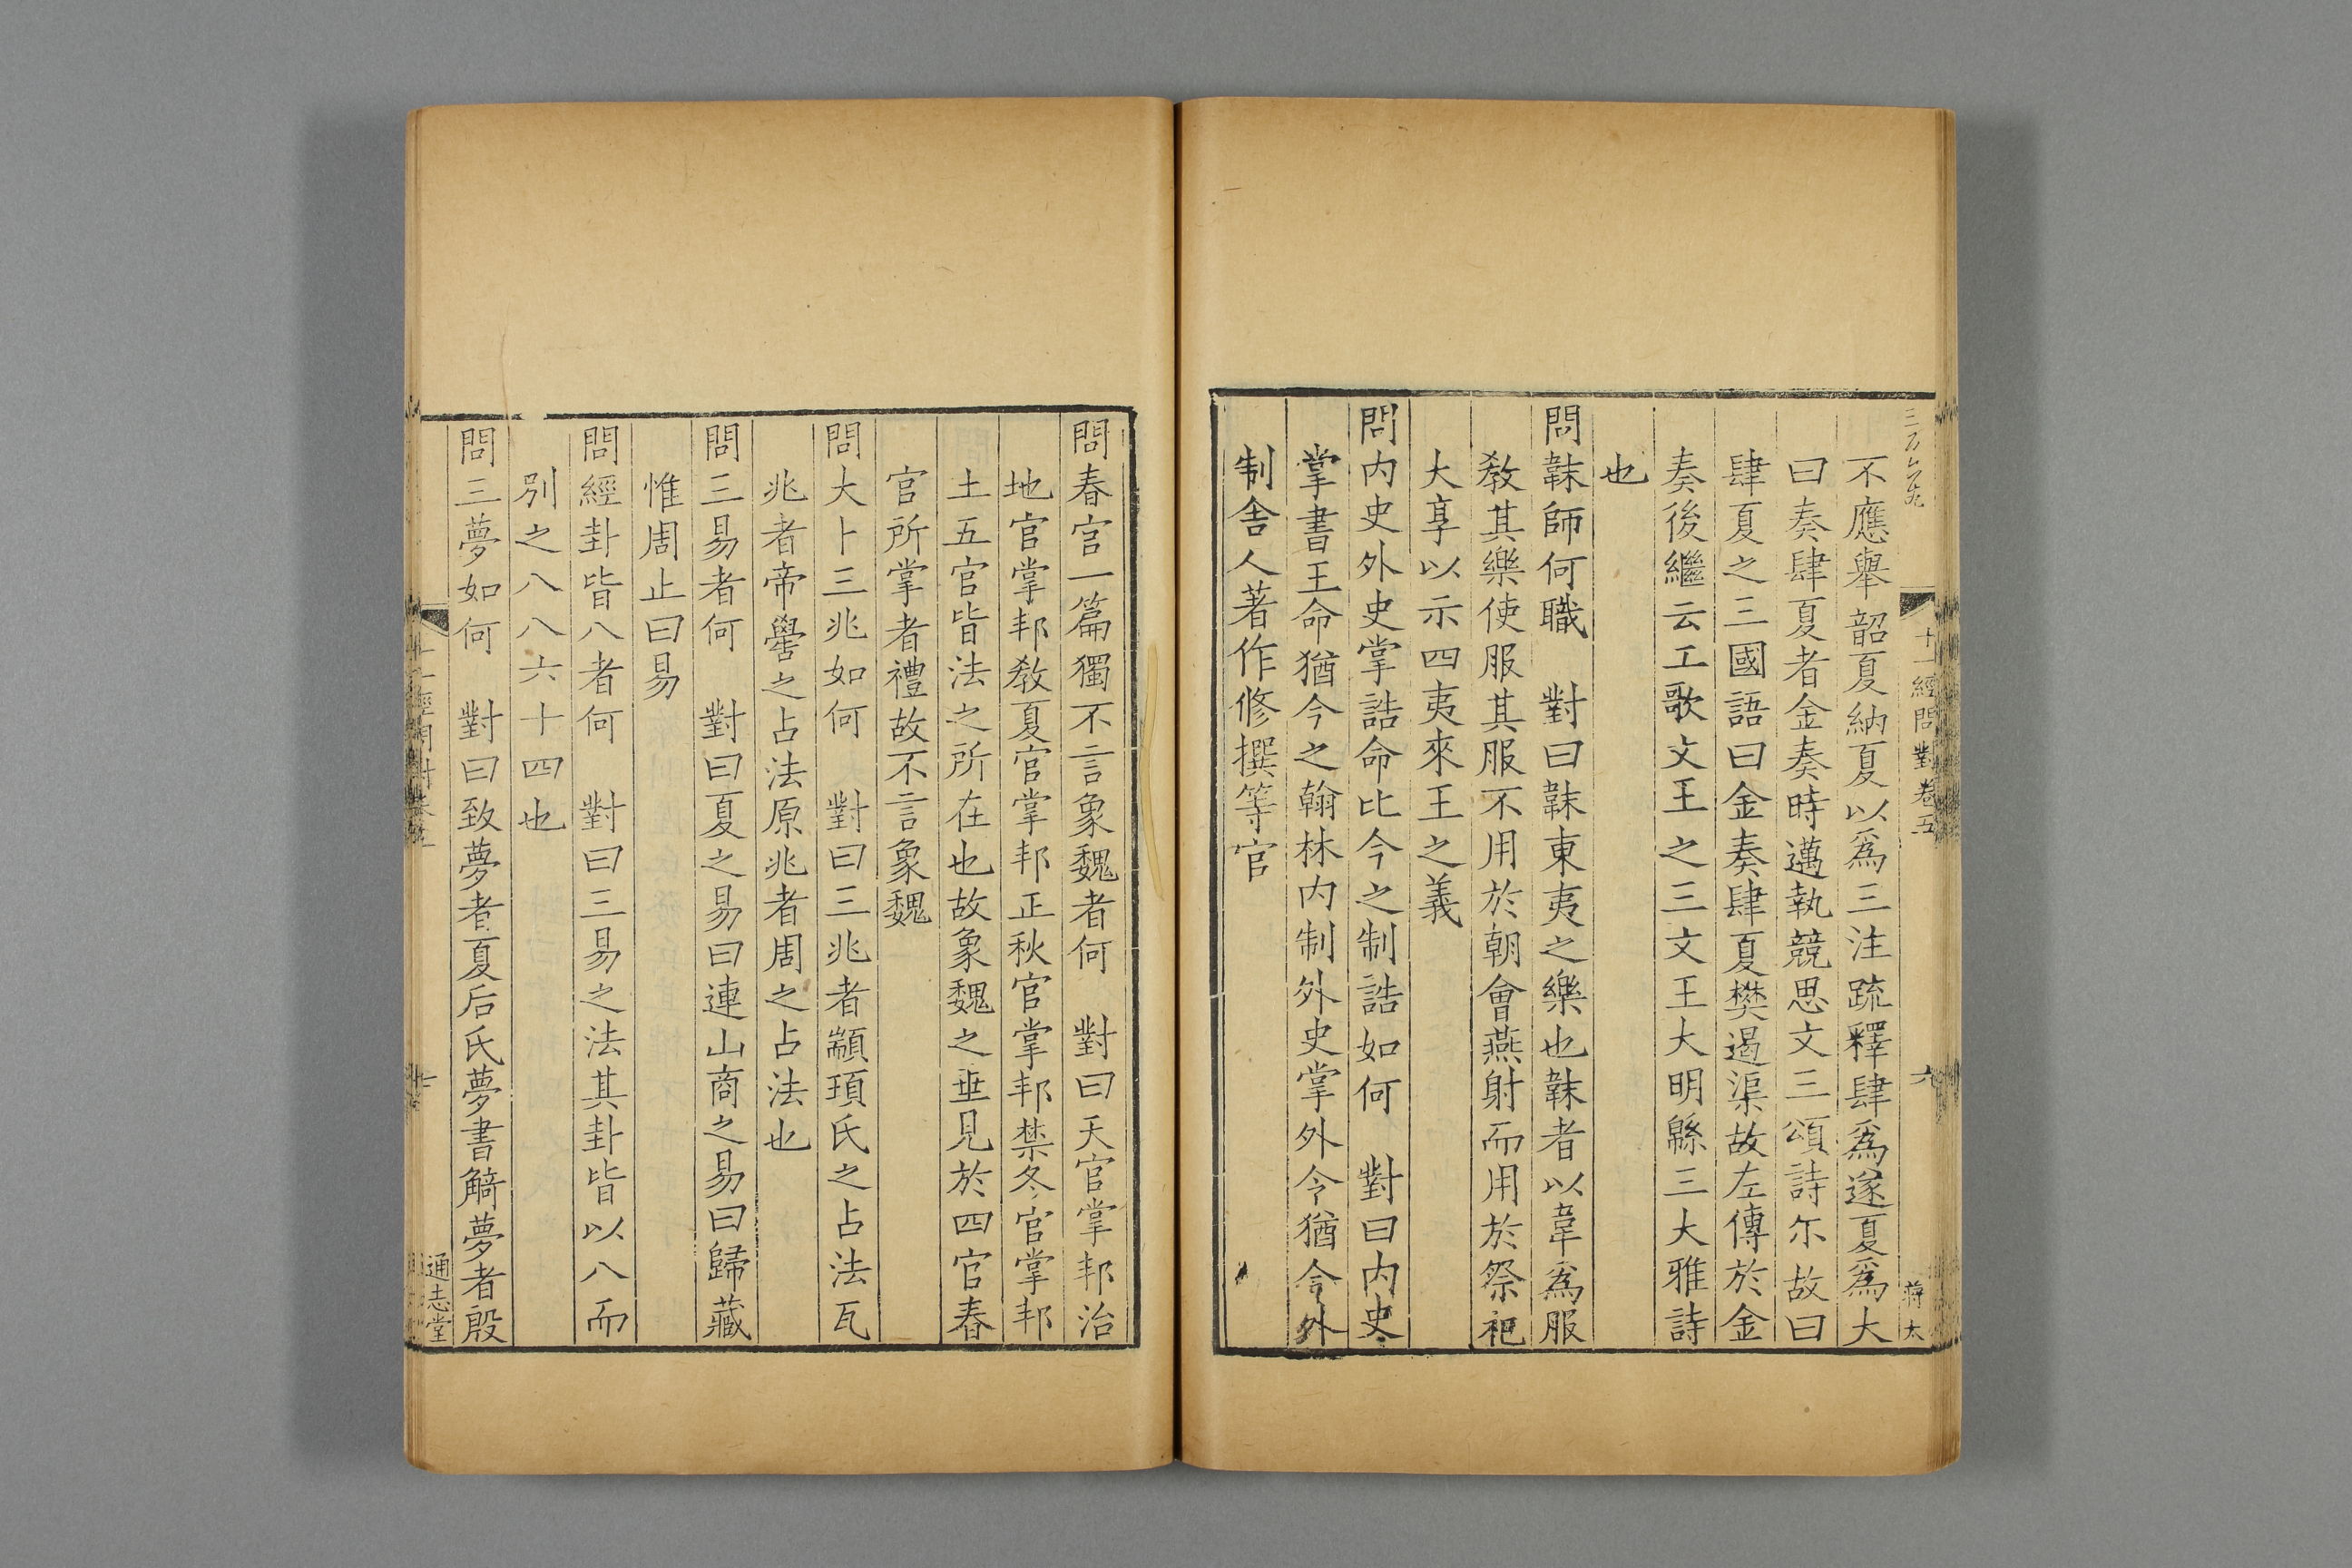 十一經問對卷五
六
蔣太
不應舉韶夏納夏以爲三注䟽釋肆爲遂夏爲大
曰奏肆夏者金奏時邁執競思文三頌詩尓故曰
肆夏之三國語曰金奏肆夏樊遏渠故左傳於金
奏後繼云工歌文王之三文王大明緜三大雅詩
也
問韎師何職　對曰韎東夷之樂也韎者以韋爲服
敎其樂使服其服不用於朝會燕射而用於祭祀
大享以示四夷來王之義
問内史外史掌誥命比今之制誥如何　對曰内史
掌書王命猶今之翰林内制外史掌外令猶今外
制舍人著作修撰等官
問春官一篇獨不言象魏者何　對曰天官掌邦治
地官掌邦敎夏官掌邦正秋官掌邦禁冬官掌邦
土五官皆法之所在也故象魏之垂見於四官春
官所掌者禮故不言象魏
問大卜三兆如何　對曰三兆者顓頊氏之占法瓦
兆者帝嚳之占法原兆者周之占法也
問三易者何　對曰夏之易曰連山商之易曰歸藏
惟周止曰易
問經卦皆八者何　對曰三易之法其卦皆以八而
別之八八六十四也
問三夢如何　對曰致夢者夏后氏夢書觭夢者殷
通志堂